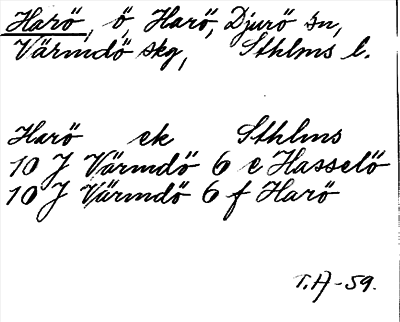 Harö, ö, Harö, Djurö sn,
Värmdö skg, Sthlms l.
Harö ek Sthlms
10 J Värmdö 6 e Hasselö
10 J Värmdö 6 f Harö
T.A-59.